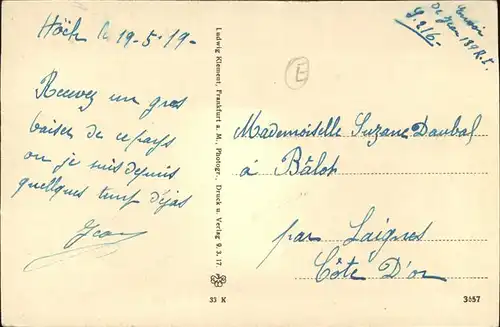 Höch le 19-5-19-
Recevez un gros
baiser de ce pays
ou je suis depuis
quelques temps déjas
Jean
Ludwig Klement, Frankfurt a. M., Photogr., Druck u. Verlag 9. 3. 17.
33 K
E
Envoi
de Jean 139 R.I.
S.216-
Mademoiselle Suzane Daubal
á Bâlot
par Laignes
Côte D'or
3657